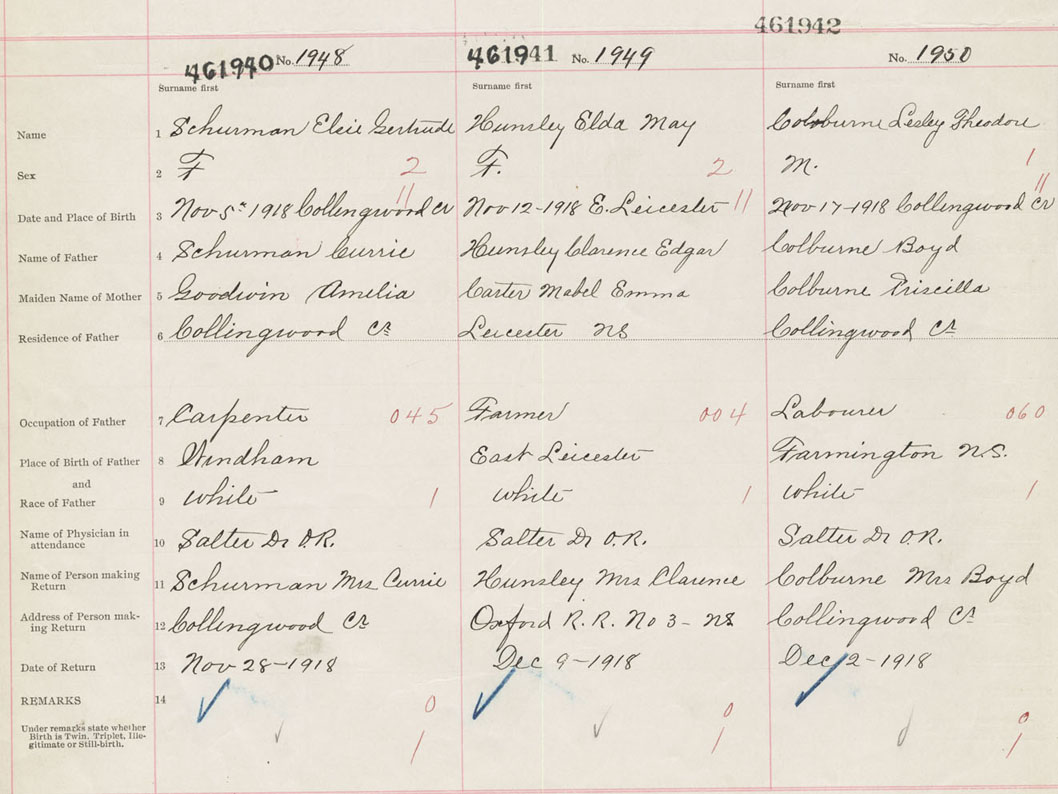 461942
461940 No. 1948 461941 No. 1949 No. 1950
Surname first Surname first Surname first
Name 1 Schurman Elsie Gertrude Hunsley Elda May Colburne Lesley Theodore
Sex 2 F 2 F. 2 M. 1
11 11
Date and Place of Birth 3 Nov 5th 1918 Collingwood Cr Nov 12-1918 E. Leicester 11 Nov 17-1918 Collingwood Cr
Name of Father 4 Schurman Currie Hunsley Clarence Edgar Colburne Boyd
Maiden Name of Mother 5 Goodwin Amelia Carter Mabel Emma Colburne Priscilla
Residence of Father 6 Collingwood Cr Leicester NS Collingwood Cr
Occupation of Father 7 Carpenter 045 Farmer 004 Labourer 060
Place of Birth of Father 8 Windham East Leicester Farmington N.S.
and
Race of Father 9 white 1 white 1 white 1
Name of Physician in
attendance 10 Salter Dr O.R. Salter Dr O.R. Salter Dr O.R.
Name of Person making
Return 11 Schurman Mrs Currie Hunsley Mrs Clarence Colburne Mrs Boyd
Address of Person mak-
ing Return 12 Collingwood Cr Oxford R. R. No 3 - NS Collingwood Cr
Date of Return 13 Nov 28-1918 Dec 9-1918 Dec 2-1918
REMARKS 14 0 0 0
Under remarks state whether
Birth is Twin, Triplet, Ille-
gitimate or Still-birth. 1 1 1